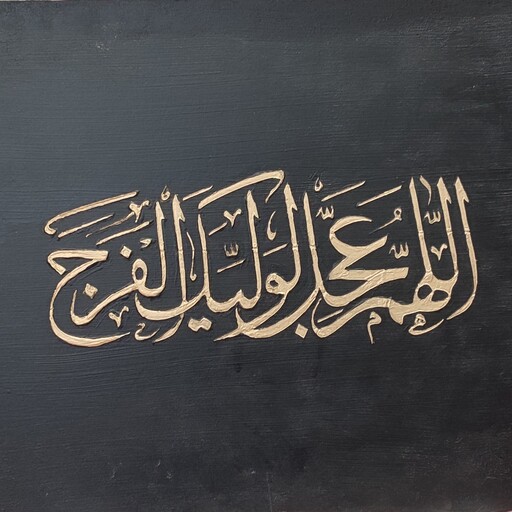 اللّٰهُمَّ عَجِّل لِوَلیِّکَ الْفَرَجَ